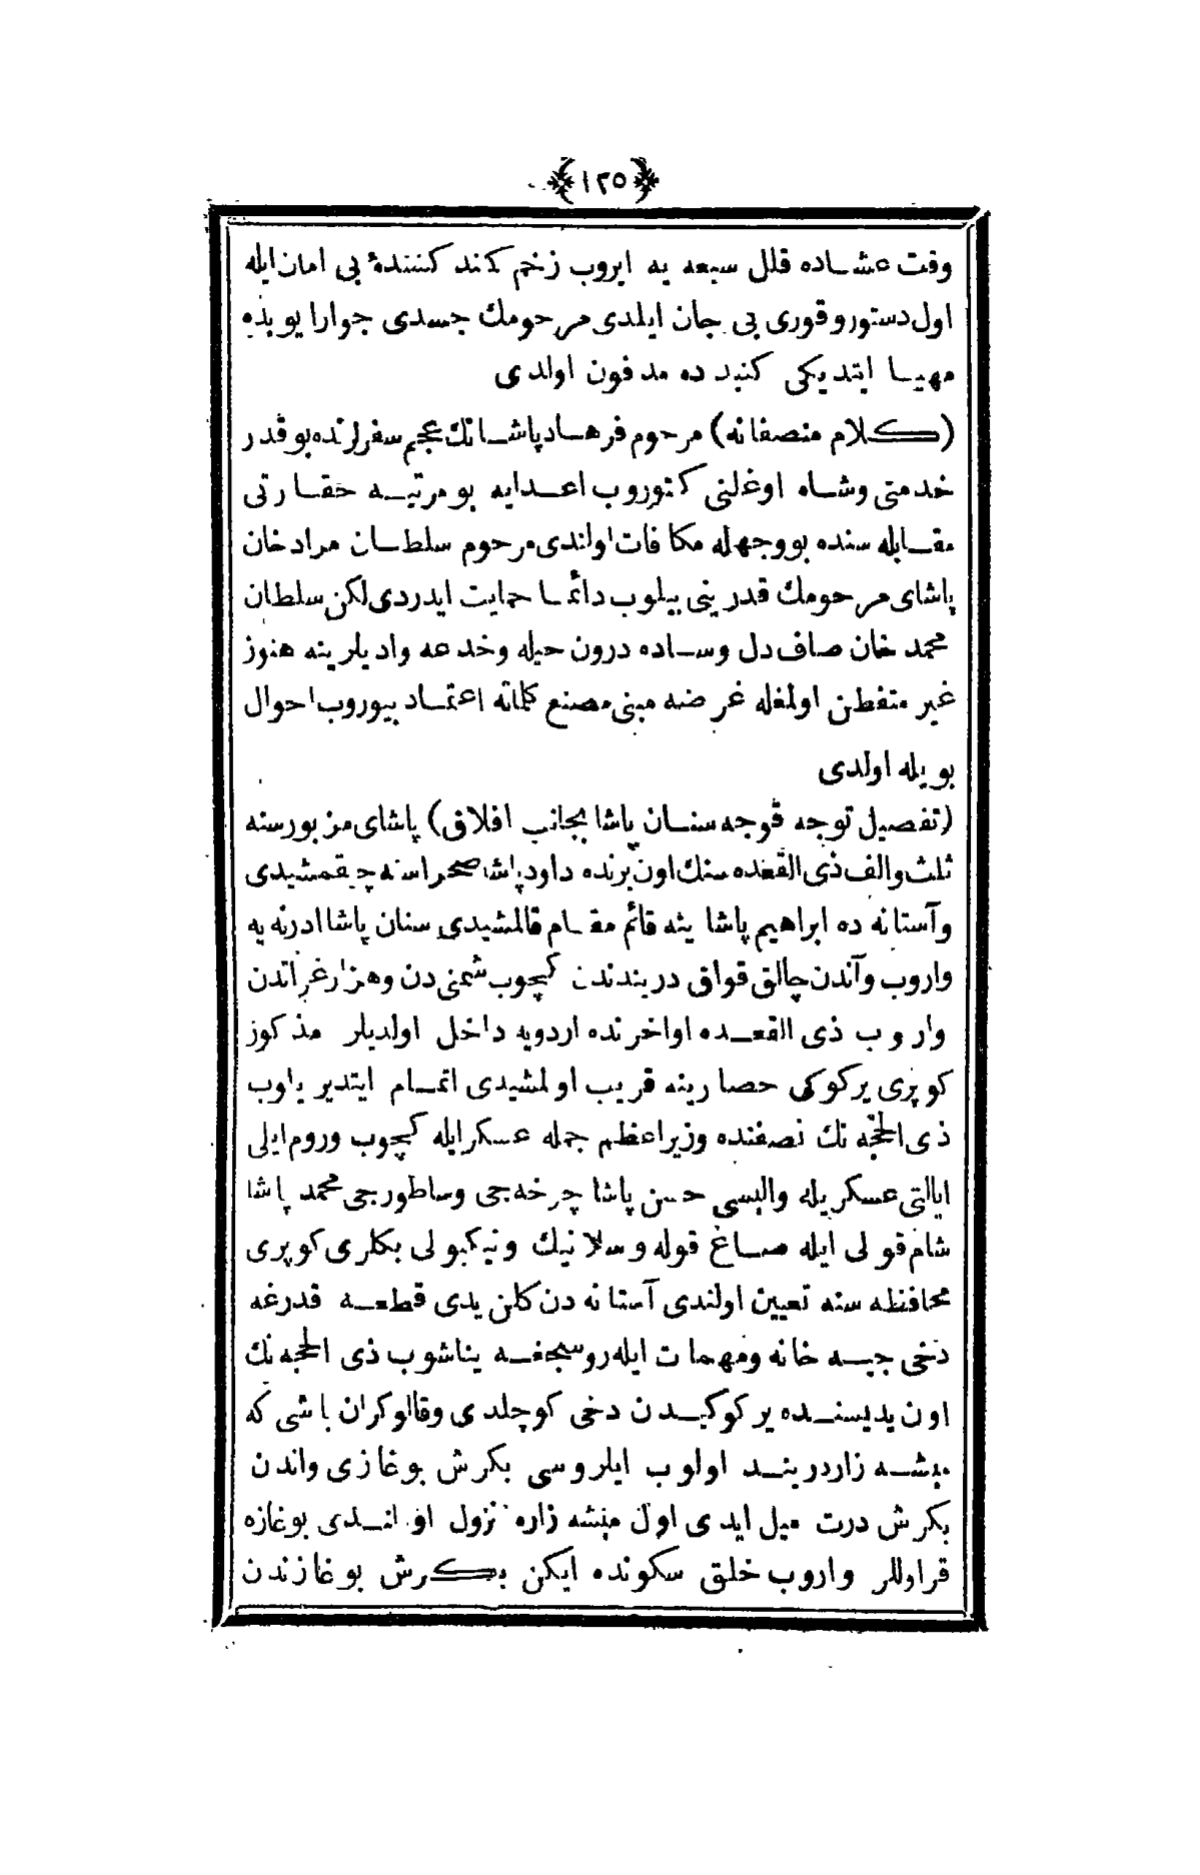 ﴿١٢٥﴾
وقت عشاده قلل سبعه یه ایروب زخم کند کننندۀ بی امان ایله
اول دستور وقوری بی جان ایلدی مرحومك جسدی جوار ایوبده
مهیا ایتدیکی کنبد ده مدفون اولدی
(کلام منصفانه) مرحوم فرهاد پاشانك عجم سفرلرنده بو قدر
خدمتی وشاه اوغلنی کتوروب اعدایه بو مرتبه حقارتی
مقابله سنده بو وجهله مکافات اولندی مرحوم سلطان مراد خان
پاشای مرحومك قدرینی بیلوب دائما حمایت ایدردی لکن سلطان
محمد خان صاف دل وساده درون حیله وخدعه وادیلرینه هنوز
غیر متفطن اولمغله غرضه مبنی مصنع کلماته اعتماد بیوروب احوال
بویله اولدی
(تفصیل توجه قوجه سنان پاشا بجانب افلاق) پاشای مزبور سنه
ثلث والف ذی القعده سنك اون برنده داود پاشا صحراسنه چیقمشیدی
وآستانه ده ابراهیم پاشا ینه قائم مقام قالمشیدی سنان پاشا ادرنه یه
واروب وآندن چالق قواق دربندندن کچوب شمنی دن وهزارغراتدن
واروب ذی القعده اواخرنده اردویه داخل اولدیلر مذکوز
کوپری یرکوکی حصارینه قریب اولمشیدی اتمام ایتدیریلوب
ذی الحجّه نك نصفنده وزیراعظم جمله عسکرایله کچوب وروم ایلی
ایالتی عسکریله والیسی حسن پاشا چرخه جی وساطورجی محمد پاشا
شام قولی ایله صاغ قوله وسلانیك ونیکبولی بکلری کوپری
محافظه سنه تعیین اولندی آستانه دن کلن یدی قطعه قدرغه
دخی جبه خانه ومهمات ایله روسجغه یناشوب ذی الحجه نك
اون یدیسنده یرکوکیدن دخی کوچلدی وقالوکران باشی که
میشه زار دربند اولوب ایلروسی بکرش بوغازی واندن
بکرش درت میل ایدی اول میشه زاره نزول اولندی بوغازه
قراوللر واروب خلق سکونده ایکن بکرش بوغازندن